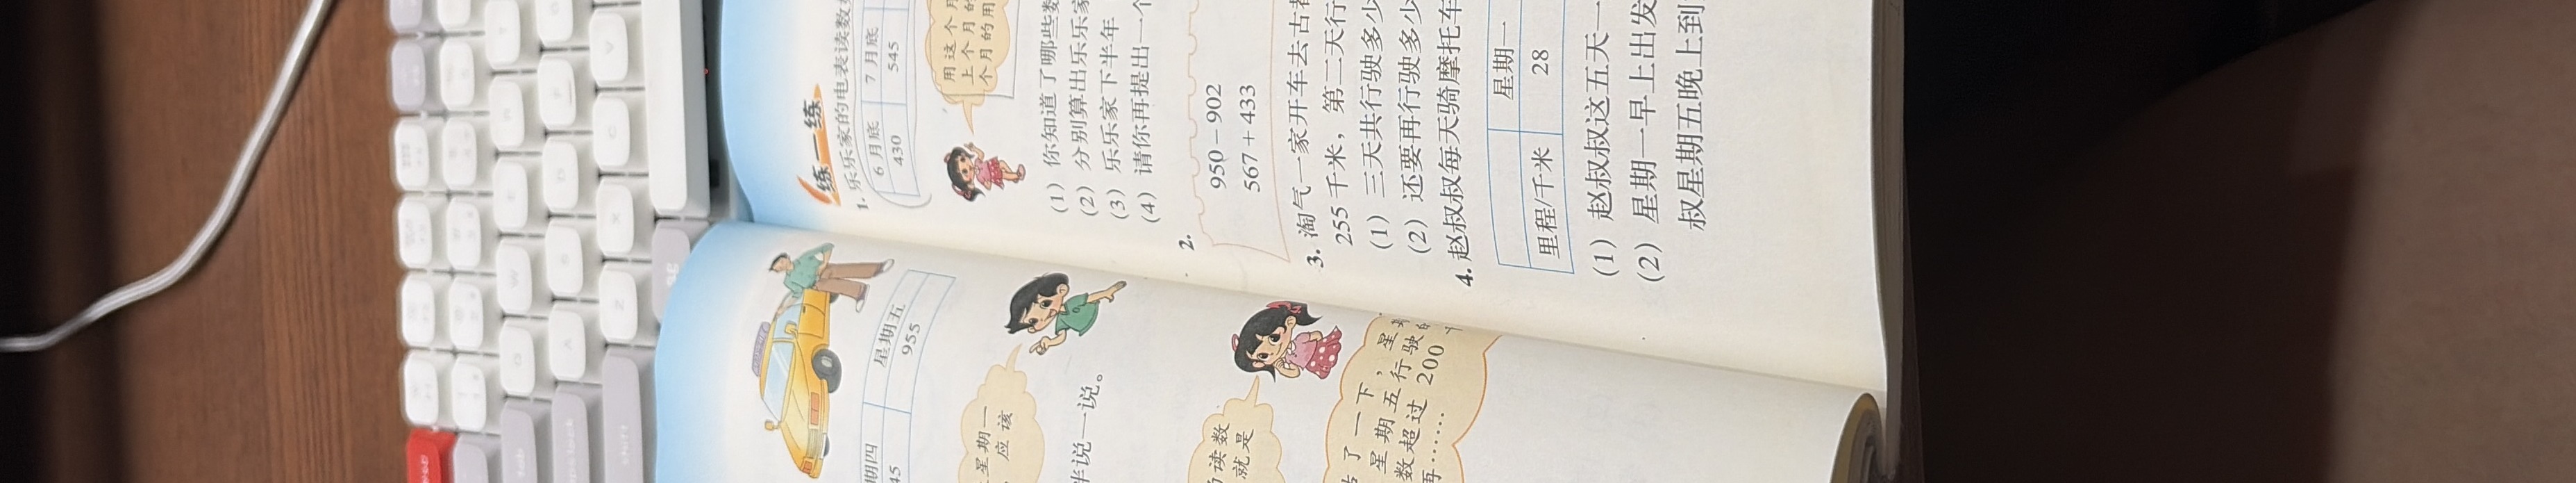 期四 星期五
45 955
星期一
应该
半说一说。
读数
就是
了一下，星
星期五行驶
数超过200
再……
练一练
1. 乐乐家的电表读数
6月底 7月底
430 545
用这个月
上个月的
个月的用
(1) 你知道了哪些数
(2) 分别算出乐乐家
(3) 乐乐家下半年
(4) 请你再提出一个
2.
950－902
567＋433
3. 淘气一家开车去古都
255千米，第二天行
(1) 三天共行驶多少
(2) 还要再行驶多少
4. 赵叔叔每天骑摩托车
星期一
里程/千米 28
(1) 赵叔叔这五天一
(2) 星期一早上出发
叔星期五晚上到